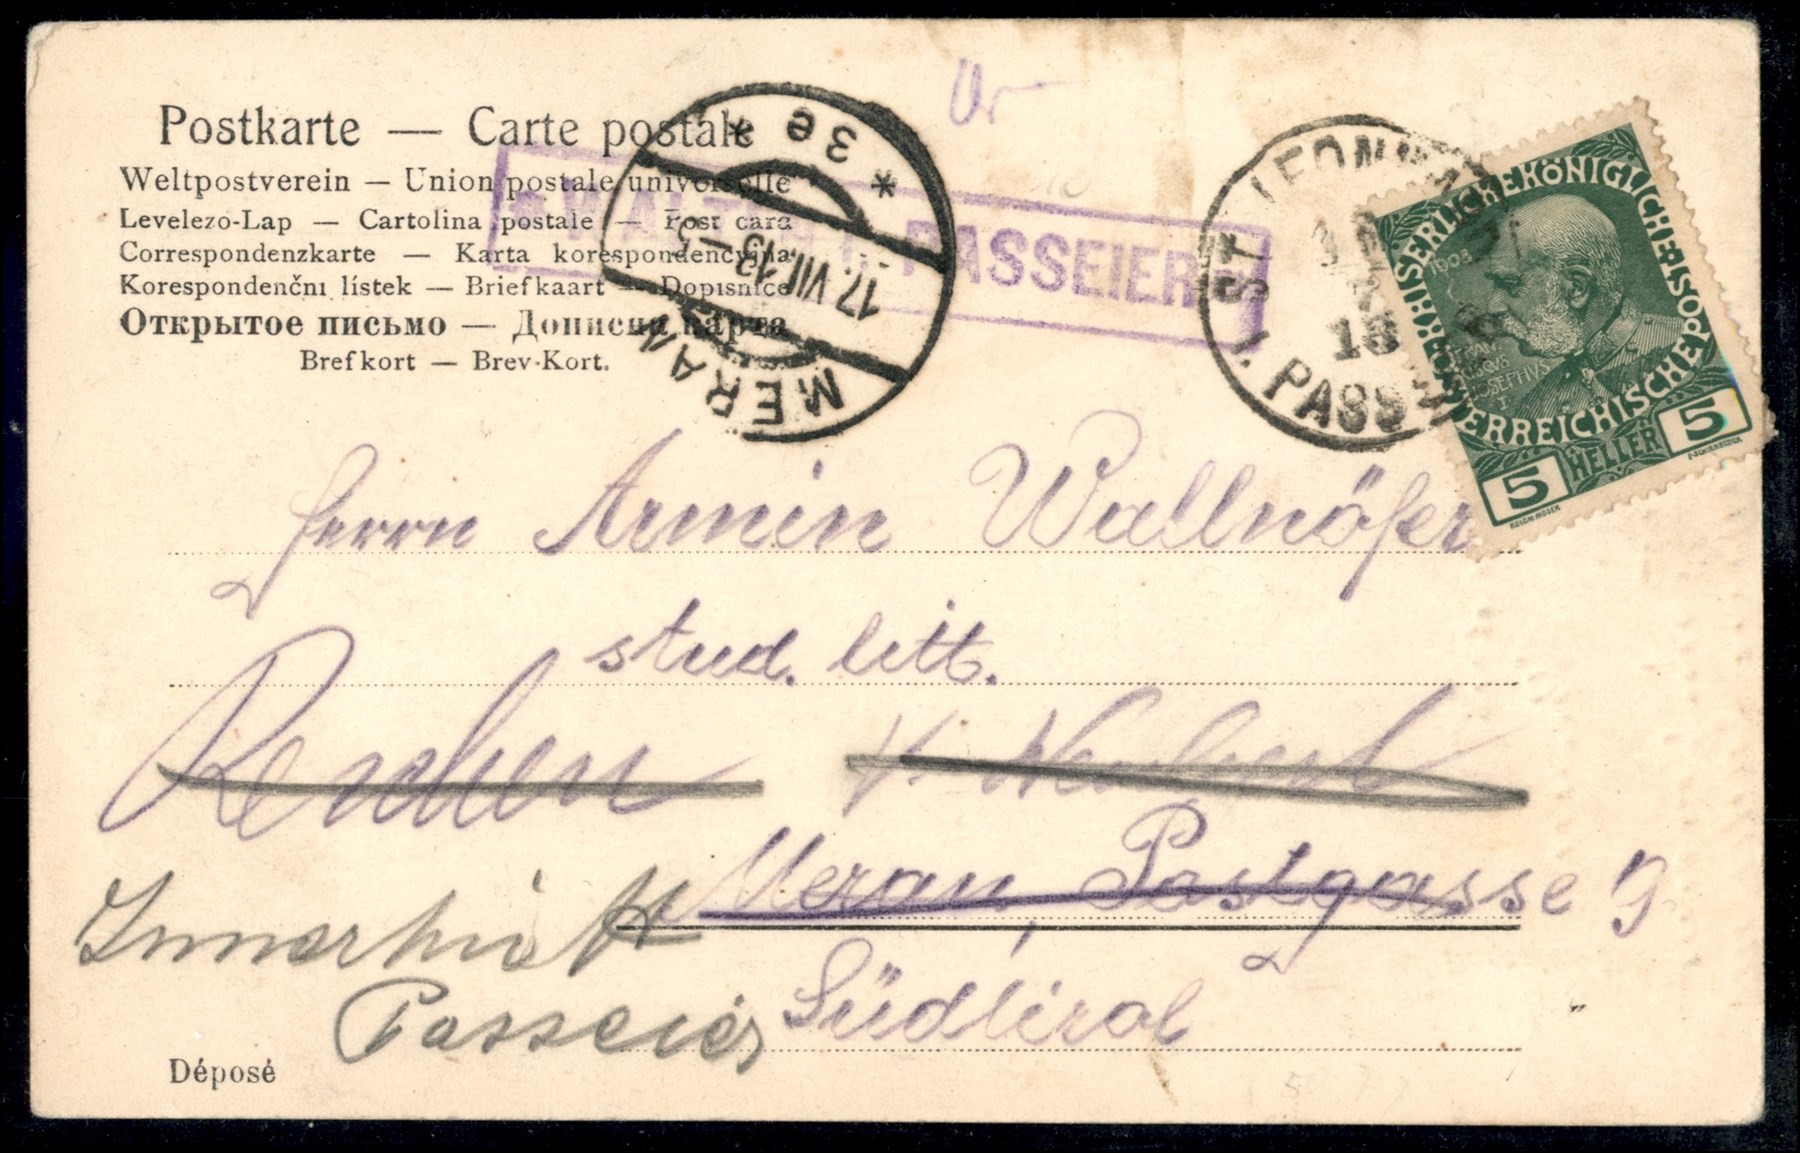 Postkarte — Carte postale
Weltpostverein — Union postale universelle
Levelezo-Lap — Cartolina postale — Post card
Correspondenzkarte — Karta korespondencyjna
Korespondenčni lístek — Briefkaart — Dopisnice
Открытое письмо — Дописна карта
Brefkort — Brev-Kort.
* 3e *
17. VII. 13 – 5
MERAN
PASSEIER
ST. LEONHARD
18
I. PASS
KAISERLICHE KÖNIGLICHE
ÖSTERREICHISCHE POST
1908
5 HELLER 5
Herrn Armin Wallnöfer
stud. litt.
Meran, Postgasse 9
Südtirol
Passeier
Déposé